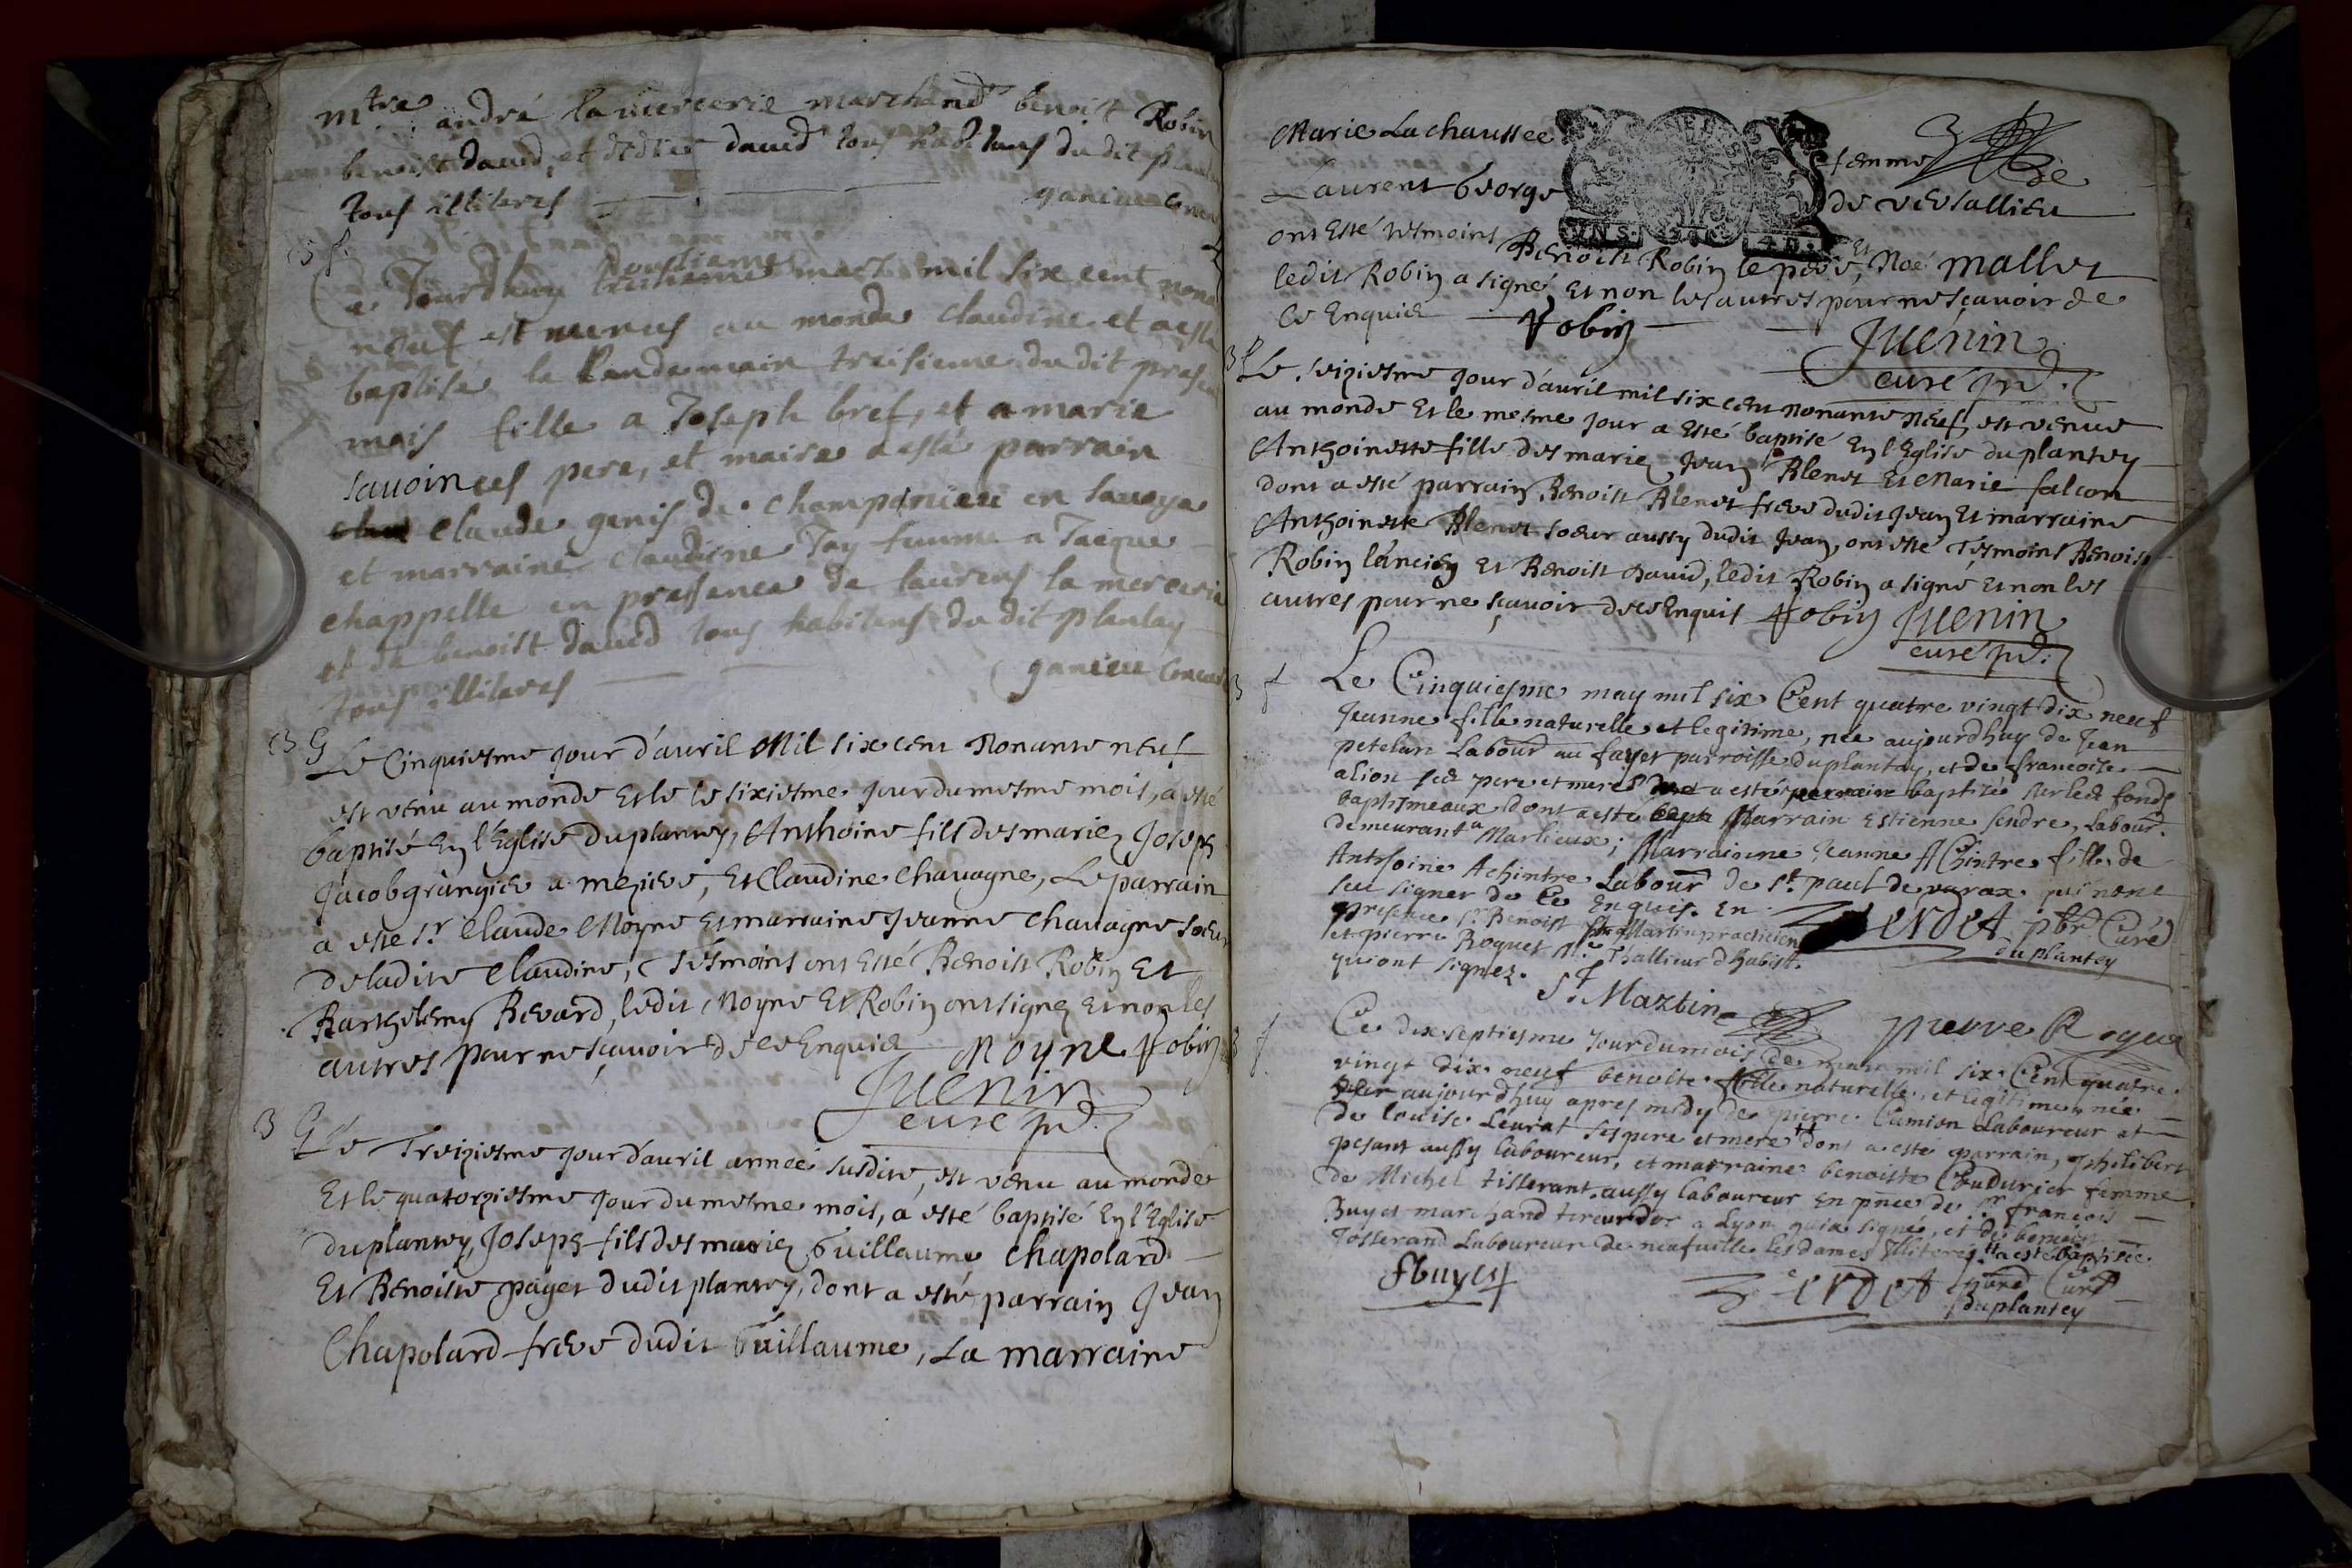 mtre andré lamercerie marchand benoist Robin
benoist david, et david tous habitans du dit
tous illiteres
B f
a Jourdhuy dousieme mars mil six cent nona
neuf est au monde claudine et a esté
baptisée le landemain treisieme du dit present
mois fille a Joseph bref, et a marie
savoin ses pere, et maire a esté parrain
claude genis de en savoye
et marraine claudine Jay famme a Jacque
chappelle en presence de laurens la mercerie
et de benoist david tous habitans du dit plantay
tous illiteres
B G
Le Cinquiesme jour d'avril Mil six cent Nonante neuf
est venu au monde et le le sixiesme jour du mesme mois, a esté
baptisé En l'Eglise du plantey, Anthoine fils des mariez Joseph
Jacob grangier a meziere, Et Claudine Chavagne, Le parrain
a esté sr. Claude Moyne et marraine Jeanne Chavagne soeur
de ladite Claudine, Tesmoins ont Esté Benoist Robin Et
Barthelemy Revard, ledit Moyne Et Robin ont signez et non les
autres pour ne sçavoir de ce Enquis Moyne Robin
Juenin
curé pnt.
B G
Le Treiziesme jour d'avril année susdite, est venu au monde
Et le quatorziesme jour du mesme mois, a esté baptisé En l'Eglise
du plantey, Joseph fils des mariez Guillaume Chapolard
Et Benoiste pager dudit plantey, dont a esté parrain Jean
Chapolard frere dudit Guillaume, La marraine
Marie Lachaussee femme de
Laurent George de versallieu
ont Esté tesmoins Benoist Robin le pere, Et Noé Mallet
ledit Robin a signé, Et non les autres pour ne sçavoir de
ce Enquis Robin
Juenin
curé pnt.
B f
Le seiziesme jour d'avril mil six cent nonante neuf, est venue
au monde Et le mesme jour a esté baptisé En l'Eglise du plantey
Anthoinette fille des mariez Jean Blenet Et Marie falcon
dont a esté parrain Benoist Blenet frere dudit Jean Et marraine
Anthoinette Blenet soeur aussy dudit Jean, ont esté Tesmoins Benoist
Robin l'ancien Et Benoist David, ledit Robin a signé Et non les
autres pour ne sçavoir de ce Enquis Robin Juenin
curé pnt.
B f
Le Cinquiesme may mil six Cent quatre vingt dix neuf
Jeanne fille naturelle et legitime, née aujourdhuy de Jean
petelan Labour au fayet parroisse du plantay, et de francoise
alion ses pere et mere a esté baptisée sur les fonds
baptismeaux dont a esté Parrain Estienne fendre, Labour.
demeurant a Marlieux; Marrainne Jeanne AChintre fille de
Anthoine Achintre Labour de st. paul de varax. qui nont
sceu signer de Ce Enquis. En
presence sr. Benoist St. Martin practicien Verdet pbr Curé
et pierre Roquet Me. Thallieur d'habist. du plantey
qui ont signez. St. Martin
pierre Roquet
B f
Ce dix septiesme Jour du mois de may mil six Cent quatre
vingt dix neuf benoite fille naturelle, et legitime, née
aujourdhuy apres midy de pierre Camion Laboureur et
de louise Leurat ses pere et mere ++ dont a esté parrain, philibert
pesant aussy laboureur, et marraine benoiste Coudurier femme
de Michel tisserant aussy laboureur en pnce de sr francois
Buyet marchand tireur dor a Lyon qui a signé, et de benoist
Josserand Laboureur de neufville les dames Illiteres. ++ a esté baptisée
fbuyet Verdet Curé
du plantey